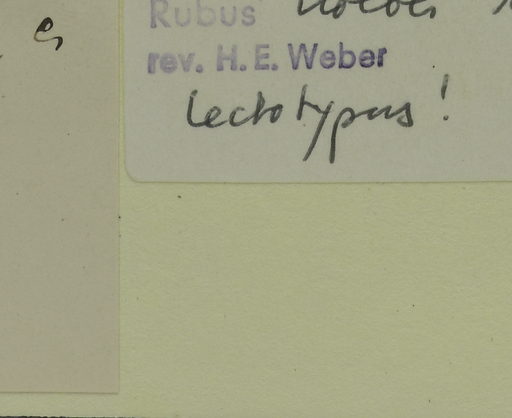 Rubus
rev. H. E. Weber
Lectotypus!